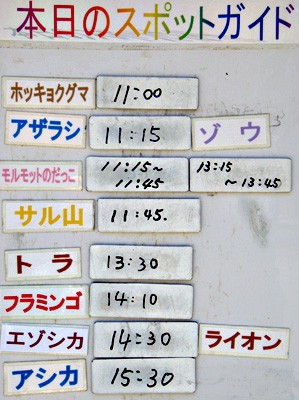 本日のスポットガイド
ホッキョクグマ 11:00
アザラシ 11:15 ゾウ
モルモットのだっこ 11:15~ 13:15
11:45 ~13:45
サル山 11:45.
トラ 13:30
フラミンゴ 14:10
エゾシカ 14:30 ライオン
アシカ 15:30